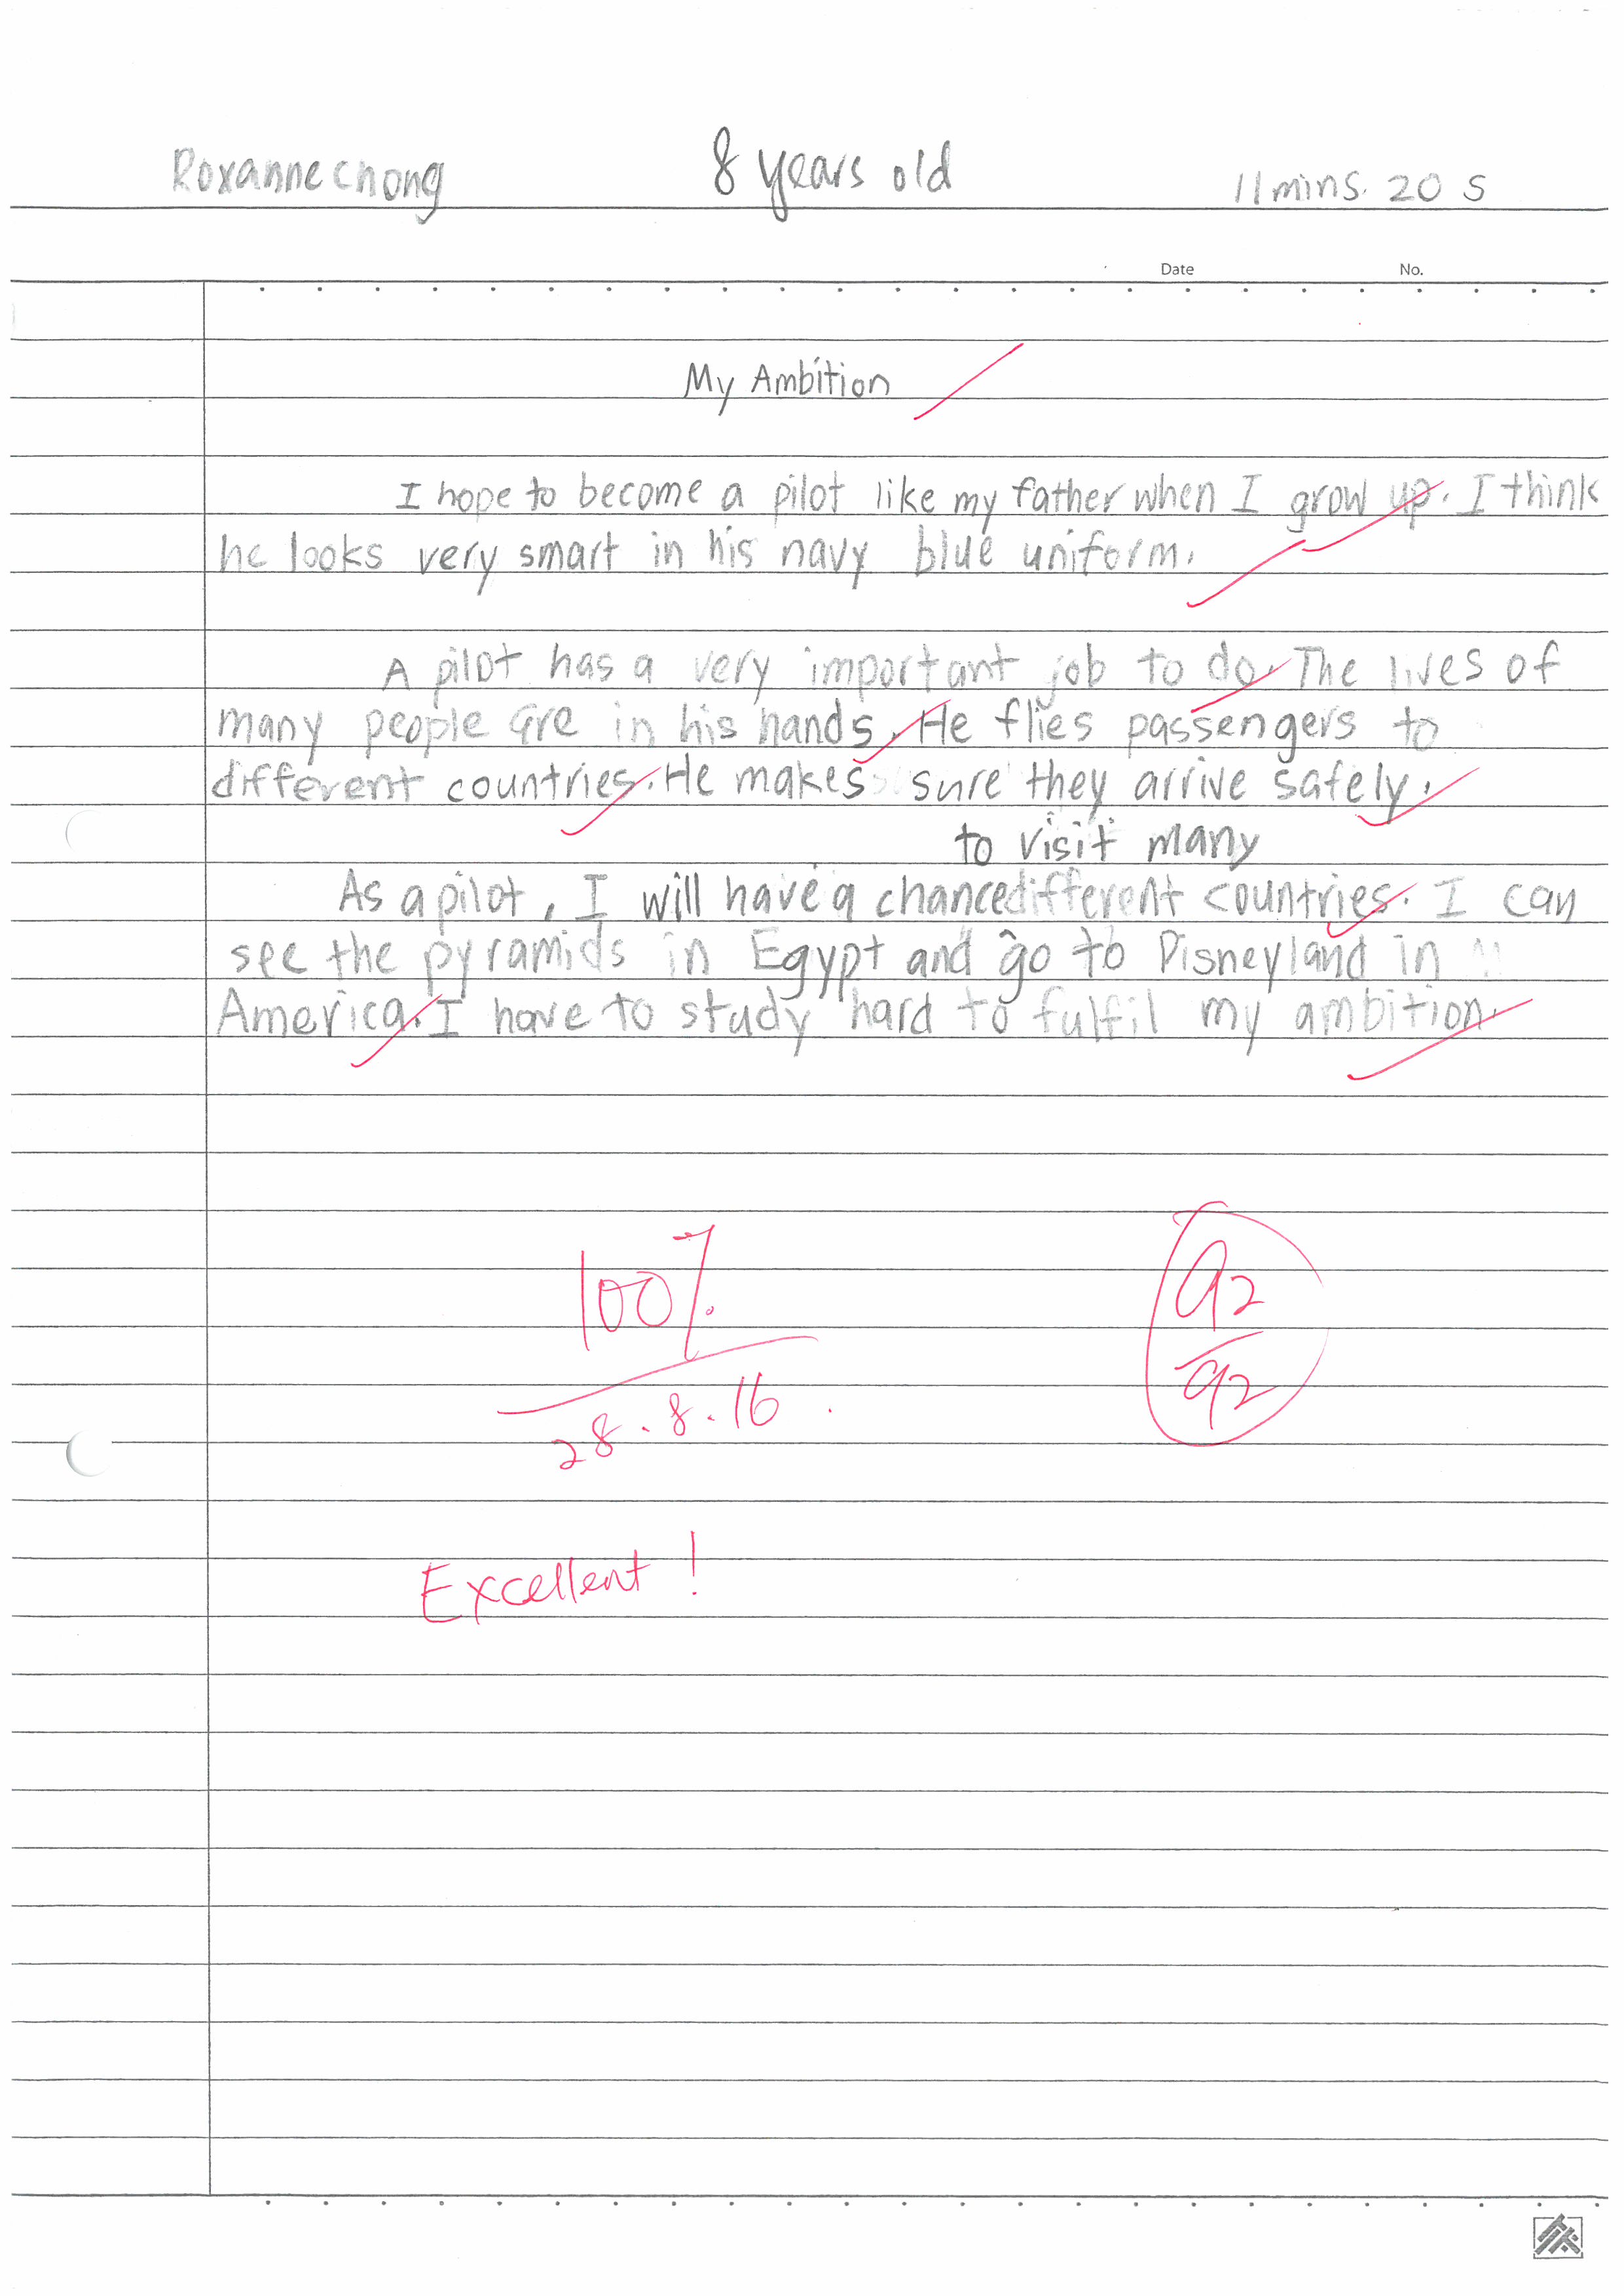 Roxanne chong 8 years old 11 mins. 20 s
Date No.
My Ambition
I hope to become a pilot like my father when I grow up. I think
he looks very smart in his navy blue uniform.
A pilot has a very important job to do. The lives of
many people are in his hands. He flies passengers to
different countries. He makes sure they arrive safely.
to visit many
As a pilot, I will have a chance different countries. I can
see the pyramids in Egypt and go to Disneyland in
America. I have to study hard to fulfil my ambition.
100%
28.8.16
92
92
Excellent!